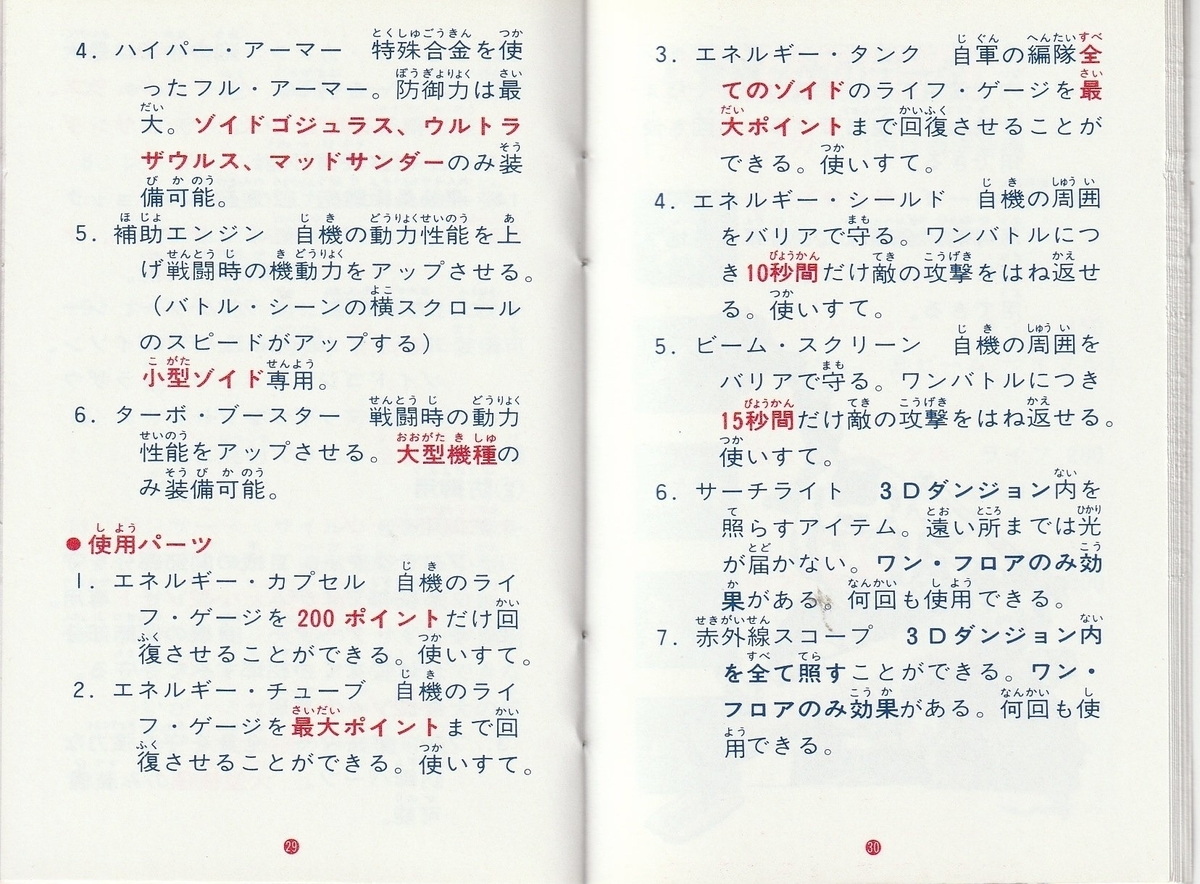 4. ハイパー・アーマー　特殊合金を使
ったフル・アーマー。防御力は最
大。ゾイドゴジュラス、ウルトラ
ザウルス、マッドサンダーのみ装
備可能。
5. 補助エンジン　自機の動力性能を上
げ戦闘時の機動力をアップさせる。
（バトル・シーンの横スクロール
のスピードがアップする）
小型ゾイド専用。
6. ターボ・ブースター　戦闘時の動力
性能をアップさせる。大型機種の
み装備可能。
●使用パーツ
1. エネルギー・カプセル　自機のライ
フ・ゲージを200ポイントだけ回
復させることができる。使いすて。
2. エネルギー・チューブ　自機のライ
フ・ゲージを最大ポイントまで回
復させることができる。使いすて。
29
3. エネルギー・タンク　自軍の編隊全
てのゾイドのライフ・ゲージを最
大ポイントまで回復させることが
できる。使いすて。
4. エネルギー・シールド　自機の周囲
をバリアで守る。ワンバトルにつ
き10秒間だけ敵の攻撃をはね返せ
る。使いすて。
5. ビーム・スクリーン　自機の周囲を
バリアで守る。ワンバトルにつき
15秒間だけ敵の攻撃をはね返せる。
使いすて。
6. サーチライト　3Dダンジョン内を
照らすアイテム。遠い所までは光
が届かない。ワン・フロアのみ効
果がある。何回も使用できる。
7. 赤外線スコープ　3Dダンジョン内
を全て照すことができる。ワン・
フロアのみ効果がある。何回も使
用できる。
30